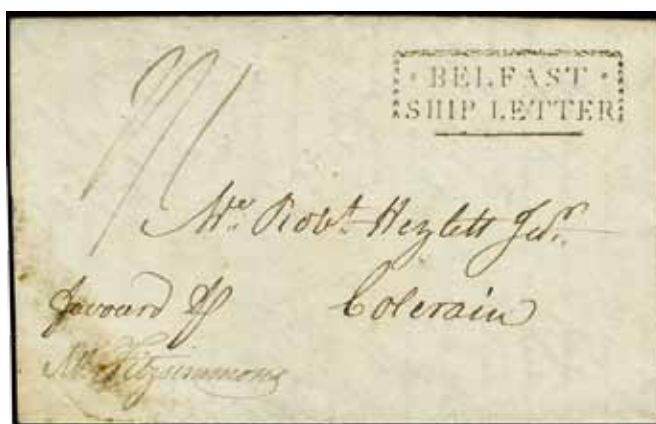 · BELFAST ·
SHIP LETTER
Mr. Robt. Hezlett Junr.
Colerain
favourd by
Mr. Fitzsimmons